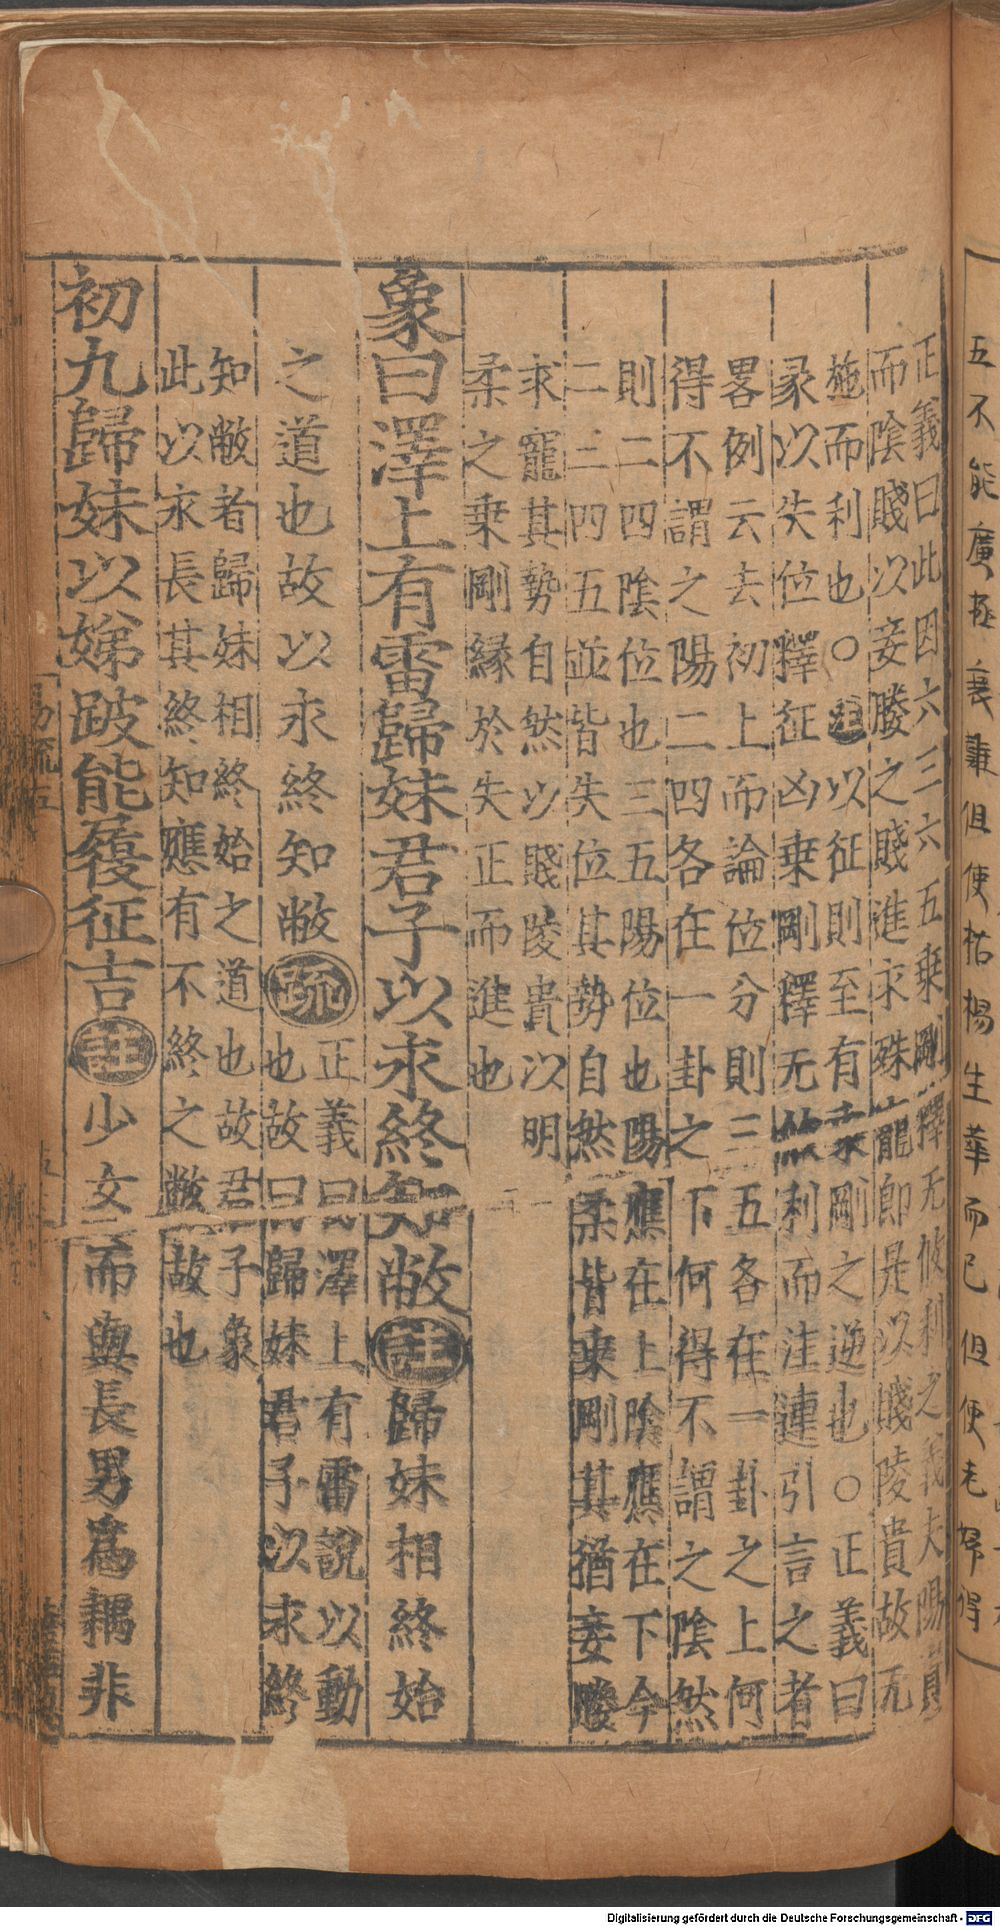 正義曰此因六三六五乗剛釋无攸利之義夫陽貴
而陰賤以妾媵之賤進求殊寵即是以賤陵貴故无
施而利也○註以征則至有乗剛之逆也○正義曰
彖以失位釋征凶乗剛釋无攸利而注連引言之者
畧例云去初上而論位分則三五各在一卦之上何
得不謂之陽二四各在一卦之下何得不謂之陰然
則二四陰位也三五陽位也陽應在上陰應在下今
二三四五並皆失位其勢自然柔皆乗剛其猶妾媵
求寵其勢自然以賤陵貴以明
柔之乗剛縁於失正而進也
象曰澤上有雷歸妹君子以永終知敝註歸妹相終始
之道也故以永終知敝疏正義曰澤上有雷說以動
也故曰歸妹君子以永終
知敝者歸妹相終始之道也故君子象
此以永長其終知應有不終之敝故也
初九歸妹以娣跛能履征吉註少女而與長男爲耦非
五不能廣
但使枯楊生華而已但使老
得
Digitalisierung gefördert durch die Deutsche Forschungsgemeinschaft - DFG